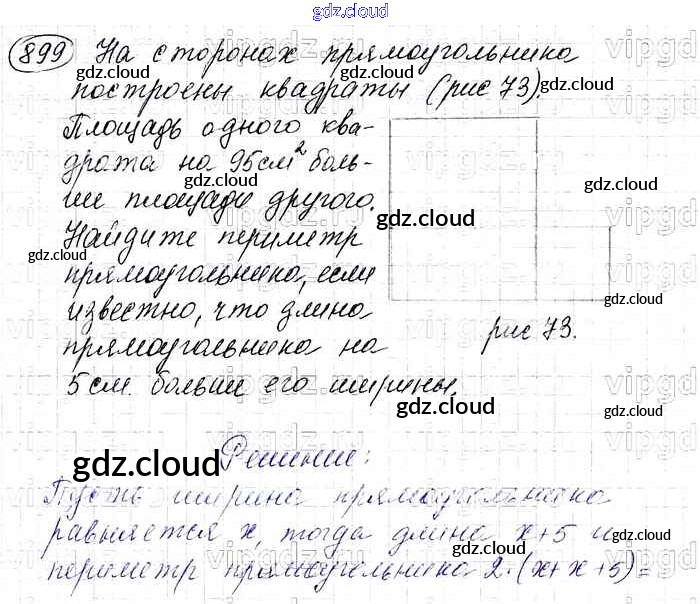 gdz.cloud
899 На сторонах прямоугольника
gdz.cloud gdz.cloud
построены квадраты (рис 73).
gdz.cloud
Площадь одного ква-
драта на 95см² боль-
ше площади другого.
gdz.cloud gdz.cloud
gdz.cloud
Найдите периметр
gdz.cloud
прямоугольника, если
известно, что длина
gdz.cloud
прямоугольника на
рис 73.
5 см. больше его ширины.
gdz.cloud gdz.cloud
Решение:
gdz.cloud
Пусть ширина прямоугольника
равняется x, тогда длина x+5 и
gdz.cloud gdz.cloud
периметр прямоугольника 2·(x+x+5)=